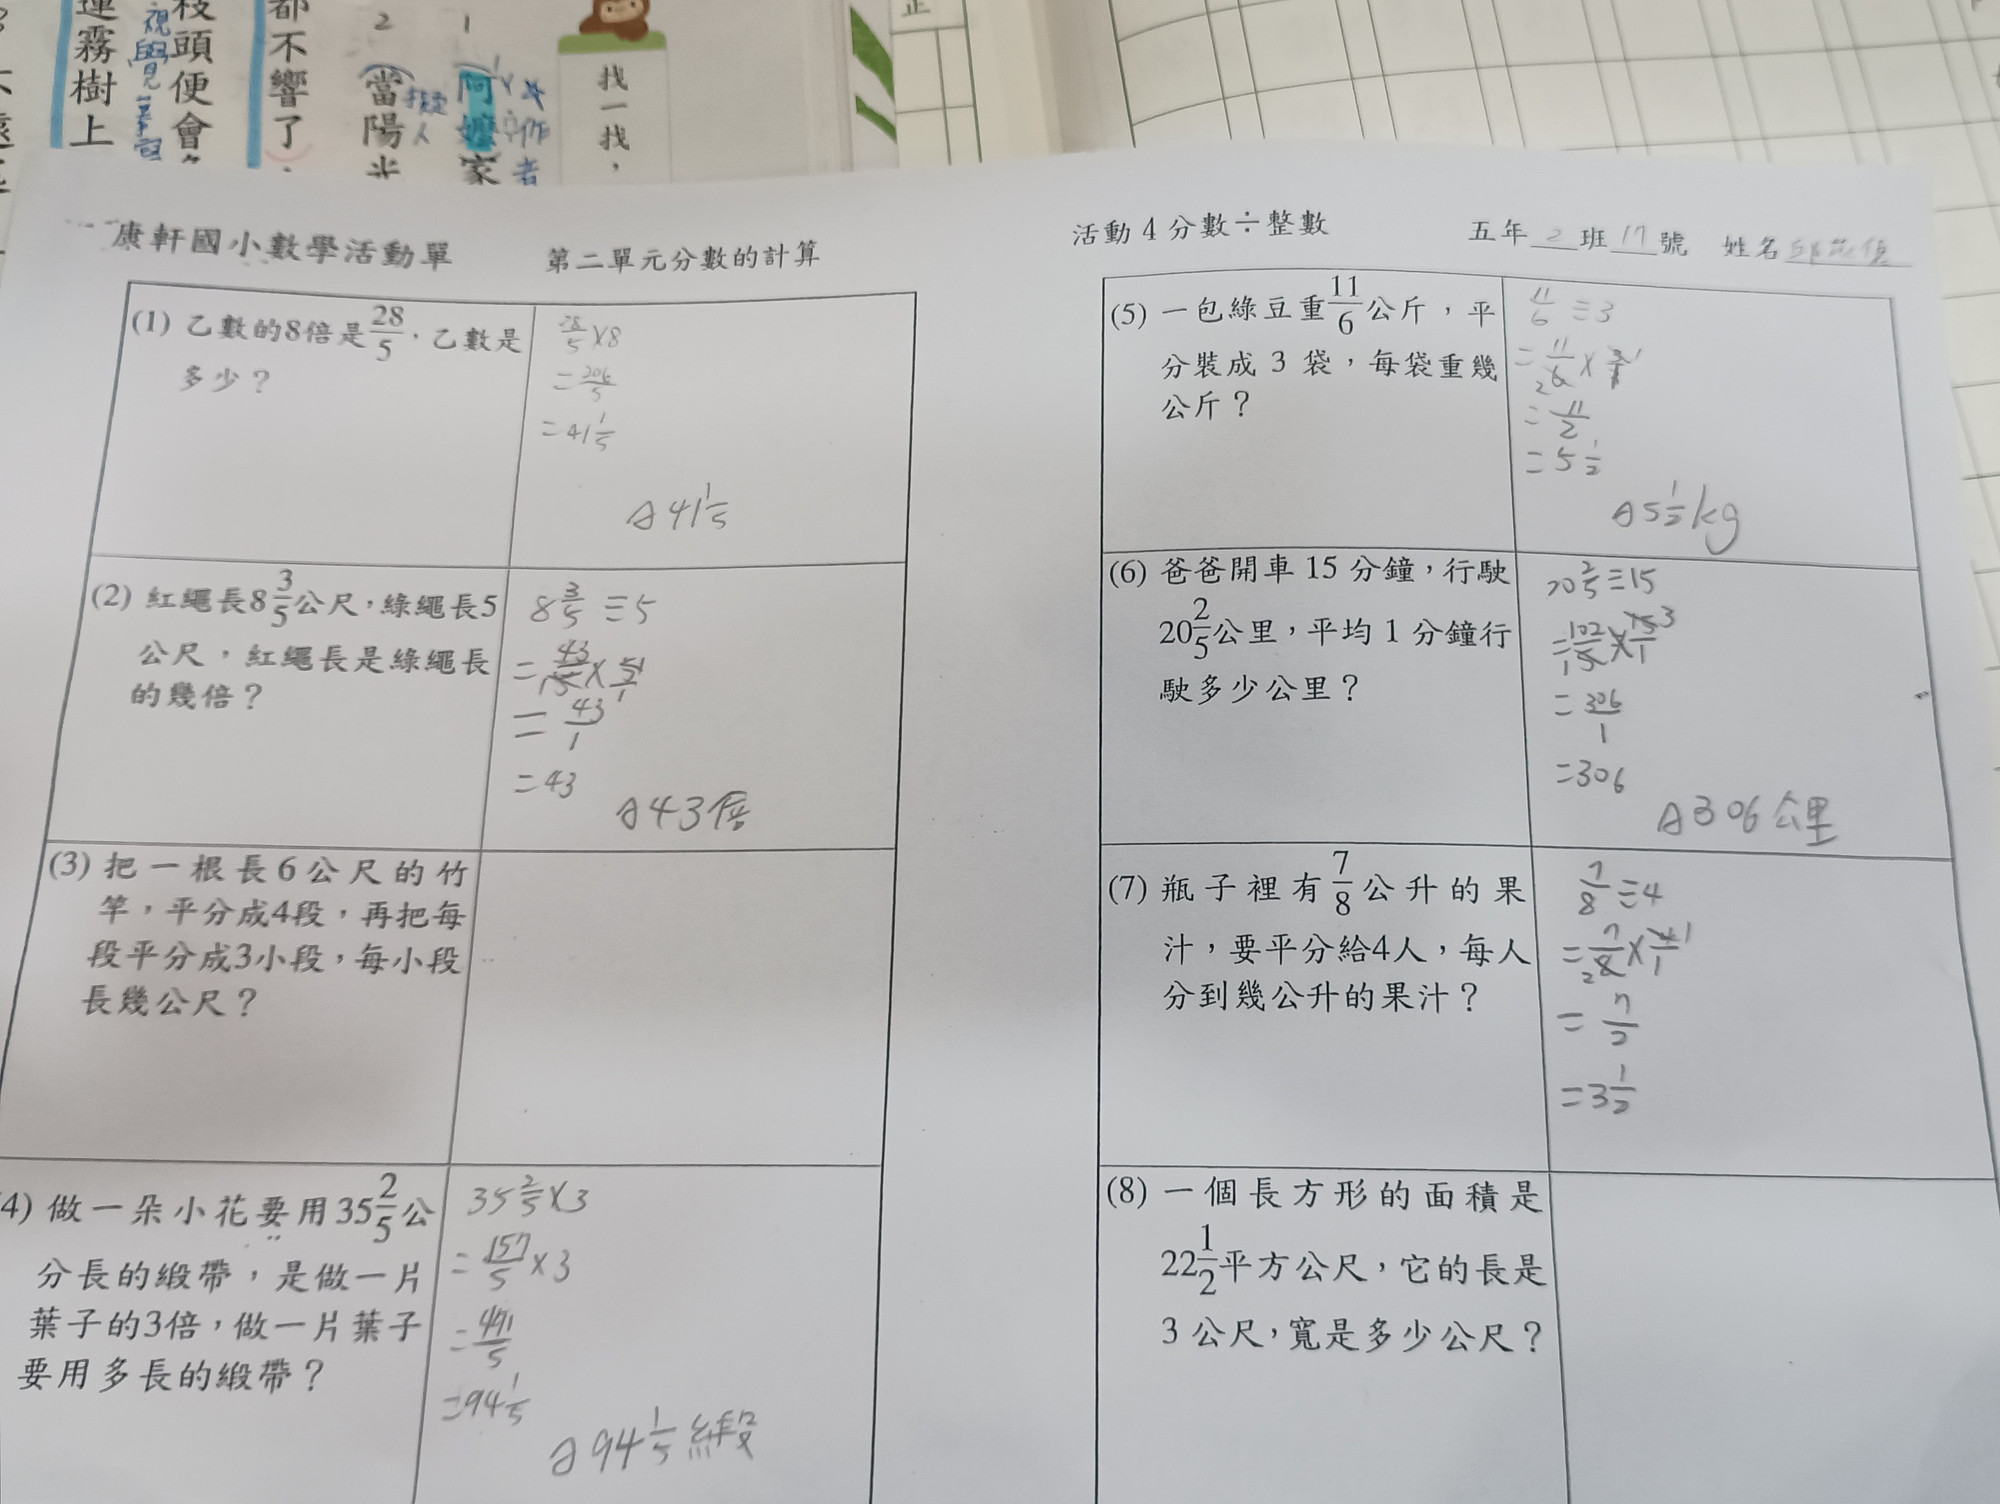 蓮霧樹上
視覺摹寫
枝頭便會
都不響了
2
當陽光
擬人
1
阿嬤家
作者
找一找，
康軒國小數學活動單 第二單元分數的計算
(1) 乙數的8倍是28/5，乙數是
多少？
28/5×8
=206/5
=41 1/5
A 41 1/5
(2) 紅繩長8 3/5公尺，綠繩長5
公尺，紅繩長是綠繩長
的幾倍？
8 3/5 ÷5
=43/5×5/1
=43/1
=43
A 43倍
(3) 把一根長6公尺的竹
竿，平分成4段，再把每
段平分成3小段，每小段
長幾公尺？
(4) 做一朵小花要用35 2/5公
分長的緞帶，是做一片
葉子的3倍，做一片葉子
要用多長的緞帶？
35 2/5×3
=157/5×3
=471/5
=94 1/5
A 94 1/5 緞
活動 4 分數÷整數 五年 2 班 17 號 姓名
(5) 一包綠豆重11/6公斤，平
分裝成 3 袋，每袋重幾
公斤？
11/6 ÷3
=11/6×3/1
=11/2
=5 1/2
A 5 1/2 kg
(6) 爸爸開車 15 分鐘，行駛
20 2/5公里，平均 1 分鐘行
駛多少公里？
20 2/5÷15
=102/5×15/1
=306/1
=306
A 306 公里
(7) 瓶子裡有7/8公升的果
汁，要平分給4人，每人
分到幾公升的果汁？
7/8÷4
=7/8×4/1
=7/2
=3 1/2
(8) 一個長方形的面積是
22 1/2平方公尺，它的長是
3 公尺，寬是多少公尺？